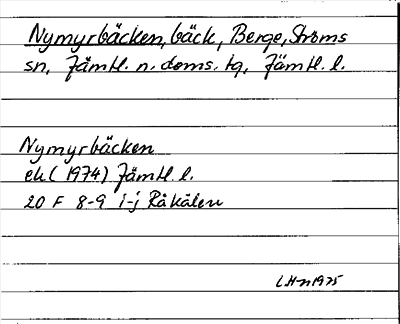 Nymyrbäcken, bäck, Berge, Ströms
sn, Jämtl. n. doms. tg, Jämtl. l.
Nymyrbäcken
ek (1974) Jämtl. l.
20 F 8-9 i-j Råkälen
LHn1975